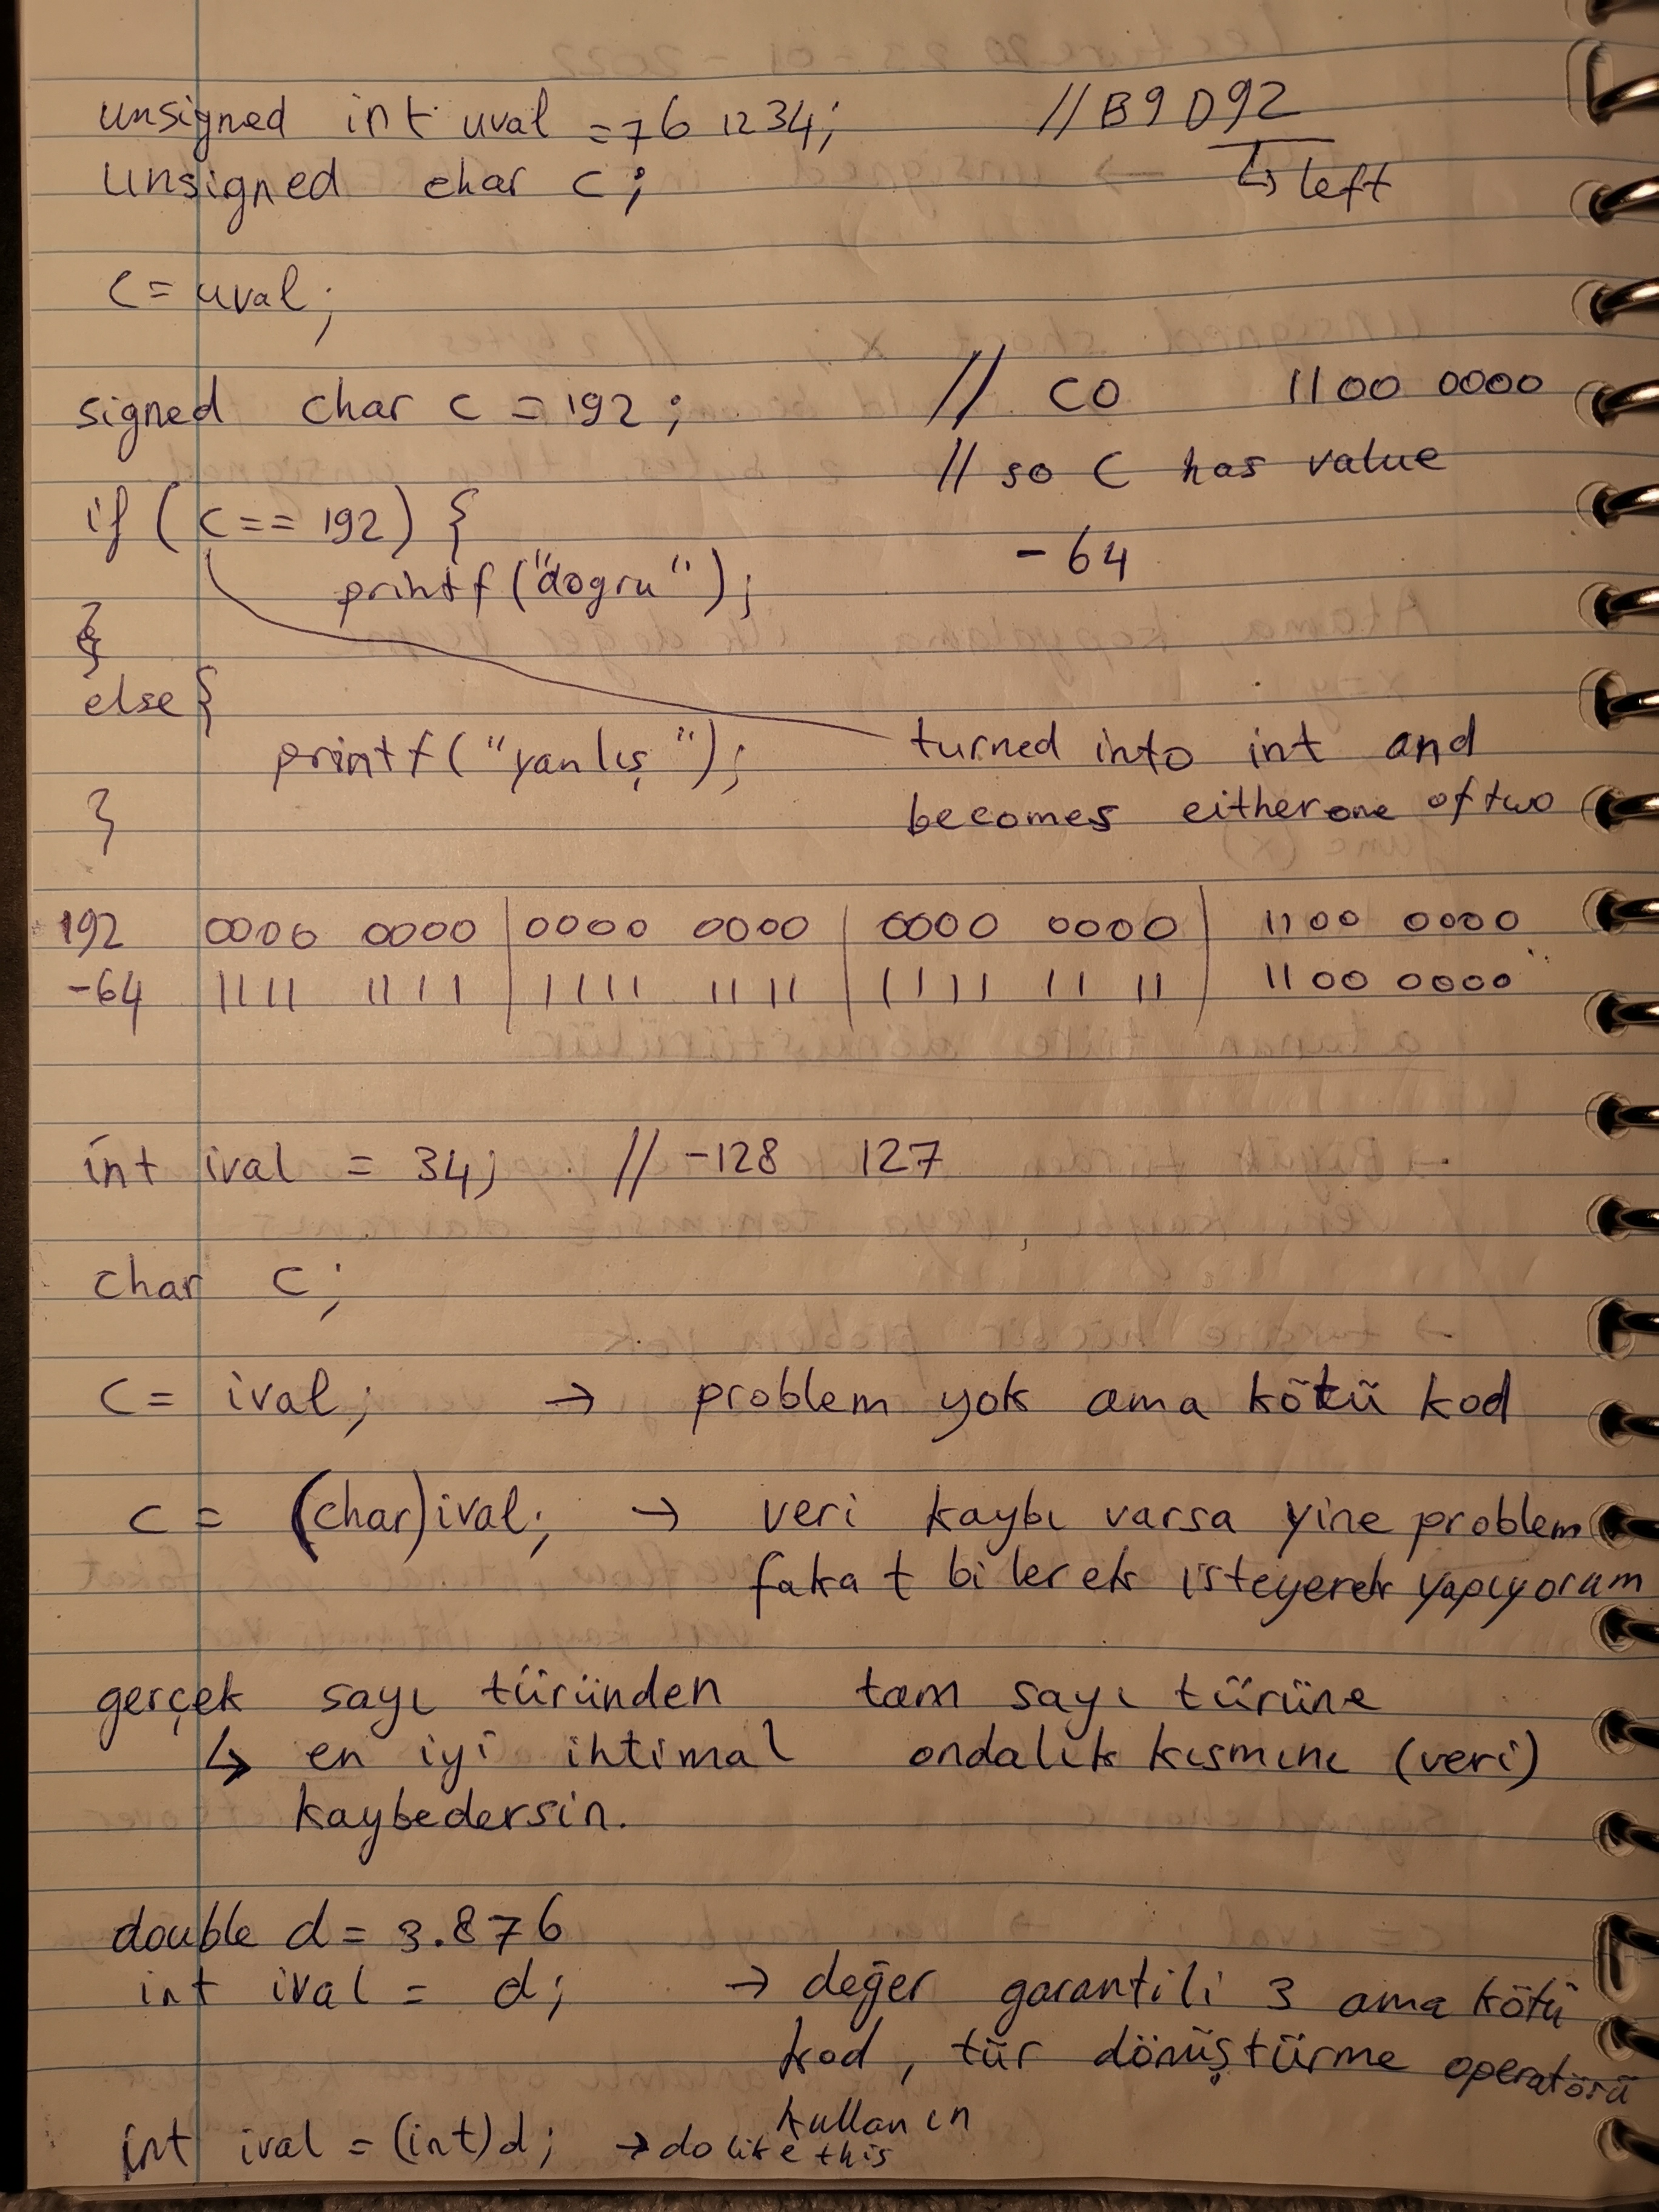 unsigned int uval = 761234; // B9D92
unsigned char c; ↳ left
c = uval;
signed char c = 192; // C0 1100 0000
// so C has value
if (c == 192) { -64
printf("dogru");
}
else {
printf("yanlış"); turned into int and
} becomes either one of two
192 0000 0000 | 0000 0000 | 0000 0000 | 1100 0000
-64 1111 1111 | 1111 1111 | 1111 1111 | 1100 0000
int ival = 34; // -128 127
char c;
c = ival; → problem yok ama kötü kod
c = (char)ival; → veri kaybı varsa yine problem
fakat bilerek isteyerek yapıyorum
gerçek sayı türünden tam sayı türüne
↳ en iyi ihtimal ondalık kısmını (veri)
kaybedersin.
double d = 3.876
int ival = d; → değer garantili 3 ama kötü
kod, tür dönüştürme operatörü
kullanın
int ival = (int)d; → do like this